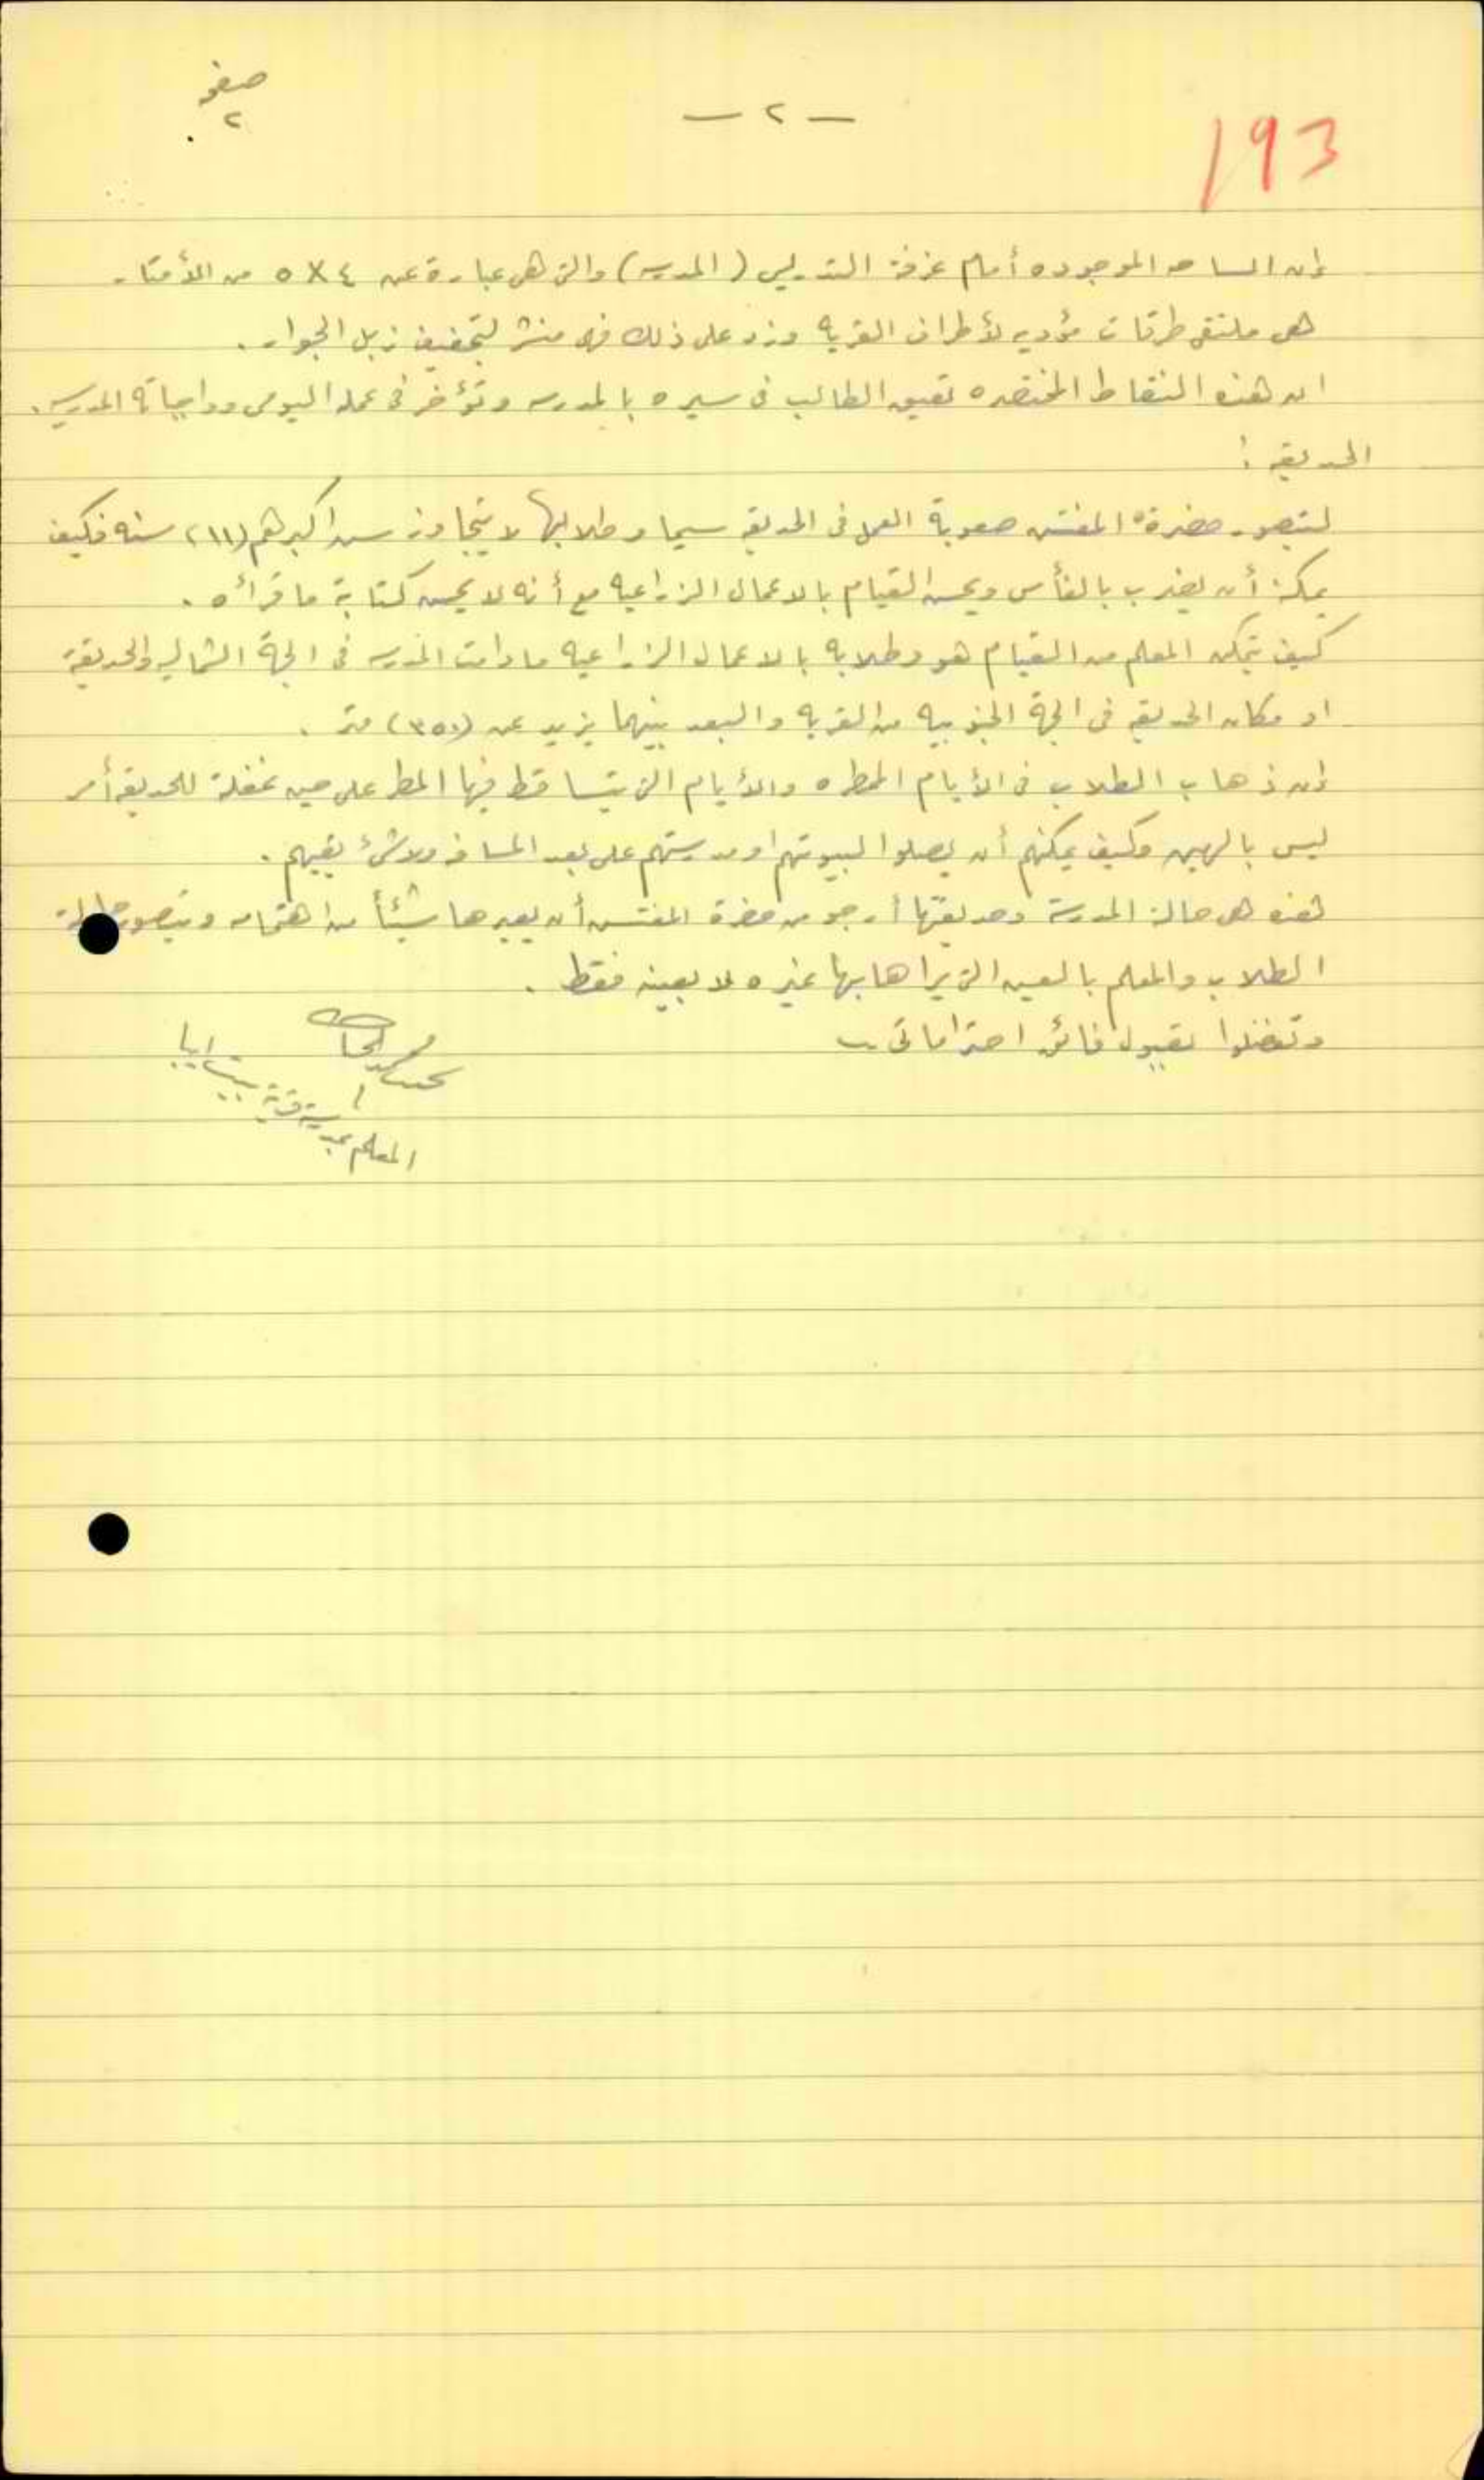 صفحه
٢
— ٢ —
193
إن الساحه الموجوده أمام غرفة التدريس (المدرسه) والتي هي عبارة عن ٤ × ٥ من الأمتار
هي ملتقى طرقات مؤديه لأطراف القريه وزد على ذلك فهي منشر لتجفيف زبل الجوار .
ان هذه النقاط المختصره تعيق الطالب في سيره بالمدرسه وتؤخر في عمله اليومي وواجباته المدرسيه .
الحديقه :
ليتصور حضرة المفتش صعوبة العمل في الحديقه سيما وطلابها لا يتجاوز سن اكبرهم (١١) سنه فكيف
يمكنه أن يضرب بالفأس ويحسن القيام بالاعمال الزراعيه مع أنه لا يحسن كتابة ما قرأه .
كيف يتمكن المعلم من القيام هو وطلابه بالاعمال الزراعيه ما دامت المدرسه في الجهة الشماليه والحديقة
او مكان الحديقه في الجهة الجنوبيه من القريه والبعد بينهما يزيد عن (٣٥٠) متر .
إن ذهاب الطلاب في الأيام الممطره والأيام التي يتساقط فيها المطر على حين غفلة للحديقه أمر
ليس بالهين وكيف يمكنهم أن يصلوا لبيوتهم او مدرستهم على بعد المسافه ولا شئ يقيهم .
هذه هي حالة المدرسة وحديقتها أرجو من حضرة المفتش أن يعيرها شيئاً من اهتمامه ويتصور حالة
الطلاب والمعلم بالعين التي يراها بها غيره لا بعينه فقط .
وتفضلوا بقبول فائق احتراماتي
المعلم بمدرسة قرية بيت ايبا